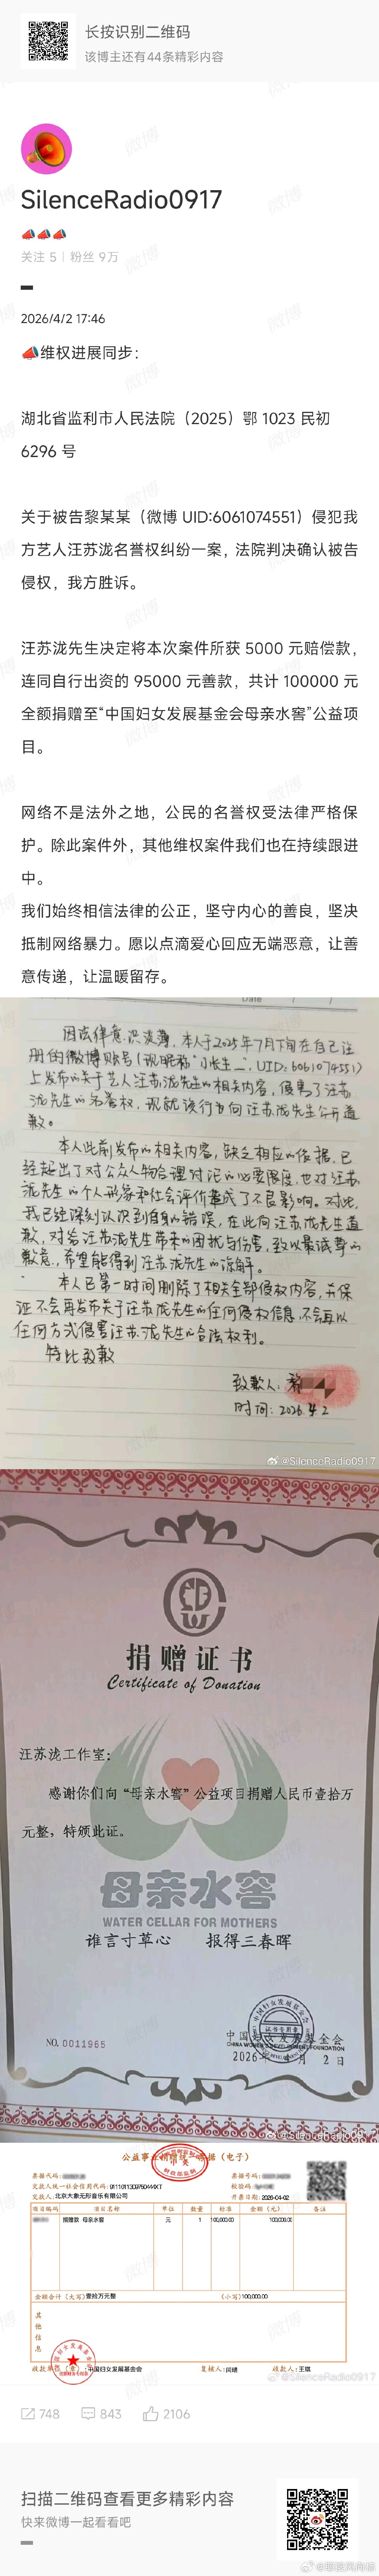 长按识别二维码
该博主还有44条精彩内容
SilenceRadio0917
📣📣📣
关注 5 | 粉丝 9万
2026/4/2 17:46
📣维权进展同步：
湖北省监利市人民法院（2025）鄂 1023 民初
6296 号
关于被告黎某某（微博 UID:6061074551）侵犯我
方艺人汪苏泷名誉权纠纷一案，法院判决确认被告
侵权，我方胜诉。
汪苏泷先生决定将本次案件所获 5000 元赔偿款，
连同自行出资的 95000 元善款，共计 100000 元
全额捐赠至“中国妇女发展基金会母亲水窖”公益项
目。
网络不是法外之地，公民的名誉权受法律严格保
护。除此案件外，其他维权案件我们也在持续跟进
中。
我们始终相信法律的公正，坚守内心的善良，坚决
抵制网络暴力。愿以点滴爱心回应无端恶意，让善
意传递，让温暖留存。
Date
因法律意识淡薄，本人于2025年7月下旬在自己注
册的微博账号（现昵称“小长生”，UID：6061074551）
上发布的关于艺人汪苏泷先生的相关内容，侵害了汪苏
泷先生的名誉权，现就该行为向汪苏泷先生公开道
歉。
本人此前发布的相关内容，缺乏相应的依据，已
经超出了对公众人物合理讨论的必要限度，也对汪苏
泷先生的个人形象和社会评价造成了不良影响。对此，
我已经深刻认识到自身的错误，在此向汪苏泷先生道
歉，对给汪苏泷先生带来的困扰与伤害，致以最诚挚的
歉意，希望能得到汪苏泷先生的谅解。
本人已第一时间删除了相关全部侵权内容，并保
证不会再发布关于汪苏泷先生的任何侵权信息，不会再以
任何方式侵害汪苏泷先生的合法权利。
特此致歉
致歉人：黎
时间：2026.4.2
@SilenceRadio0917
捐赠证书
Certificate of Donation
汪苏泷工作室：
感谢你们向“母亲水窖”公益项目捐赠人民币壹拾万
元整，特颁此证。
母亲水窖
WATER CELLAR FOR MOTHERS
谁言寸草心 报得三春晖
NO. 0011965
中国妇女发展基金会
CHINA WOMEN'S DEVELOPMENT FOUNDATION
证书专用章
2026年 月 2 日
@SilenceRadio0917
公益事业捐赠统一票据（电子）
票据代码：
票据号码：
交款人统一社会信用代码：
校验码：
交款人：北京大象无形音乐有限公司
开票日期：2026-04-02
项目编码 项目名称 单位 数量 标准 金额（元） 备注
捐赠款 母亲水窖 元 1 100,000.00 100,000.00
金额合计（大写）壹拾万元整 （小写）100,000.00
其他信息
收款单位（章）：中国妇女发展基金会 复核人：闫婧 收款人：王琪
@SilenceRadio0917
748 843 2106
扫描二维码查看更多精彩内容
快来微博一起看看吧
微博